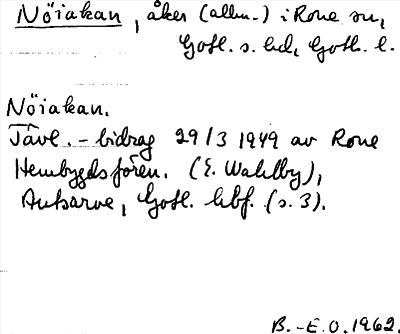 Nöiakan, åker (allm.) i Rone sn,
Gotl. s. hd, Gotl. l.
Nöiakan.
Tävl. - bidrag 29/3 1949 av Rone
Hembygdsfören. (E. Wahlby),
Autsarve, Gotl. hbf. (s. 3).
B.-E.O. 1962.